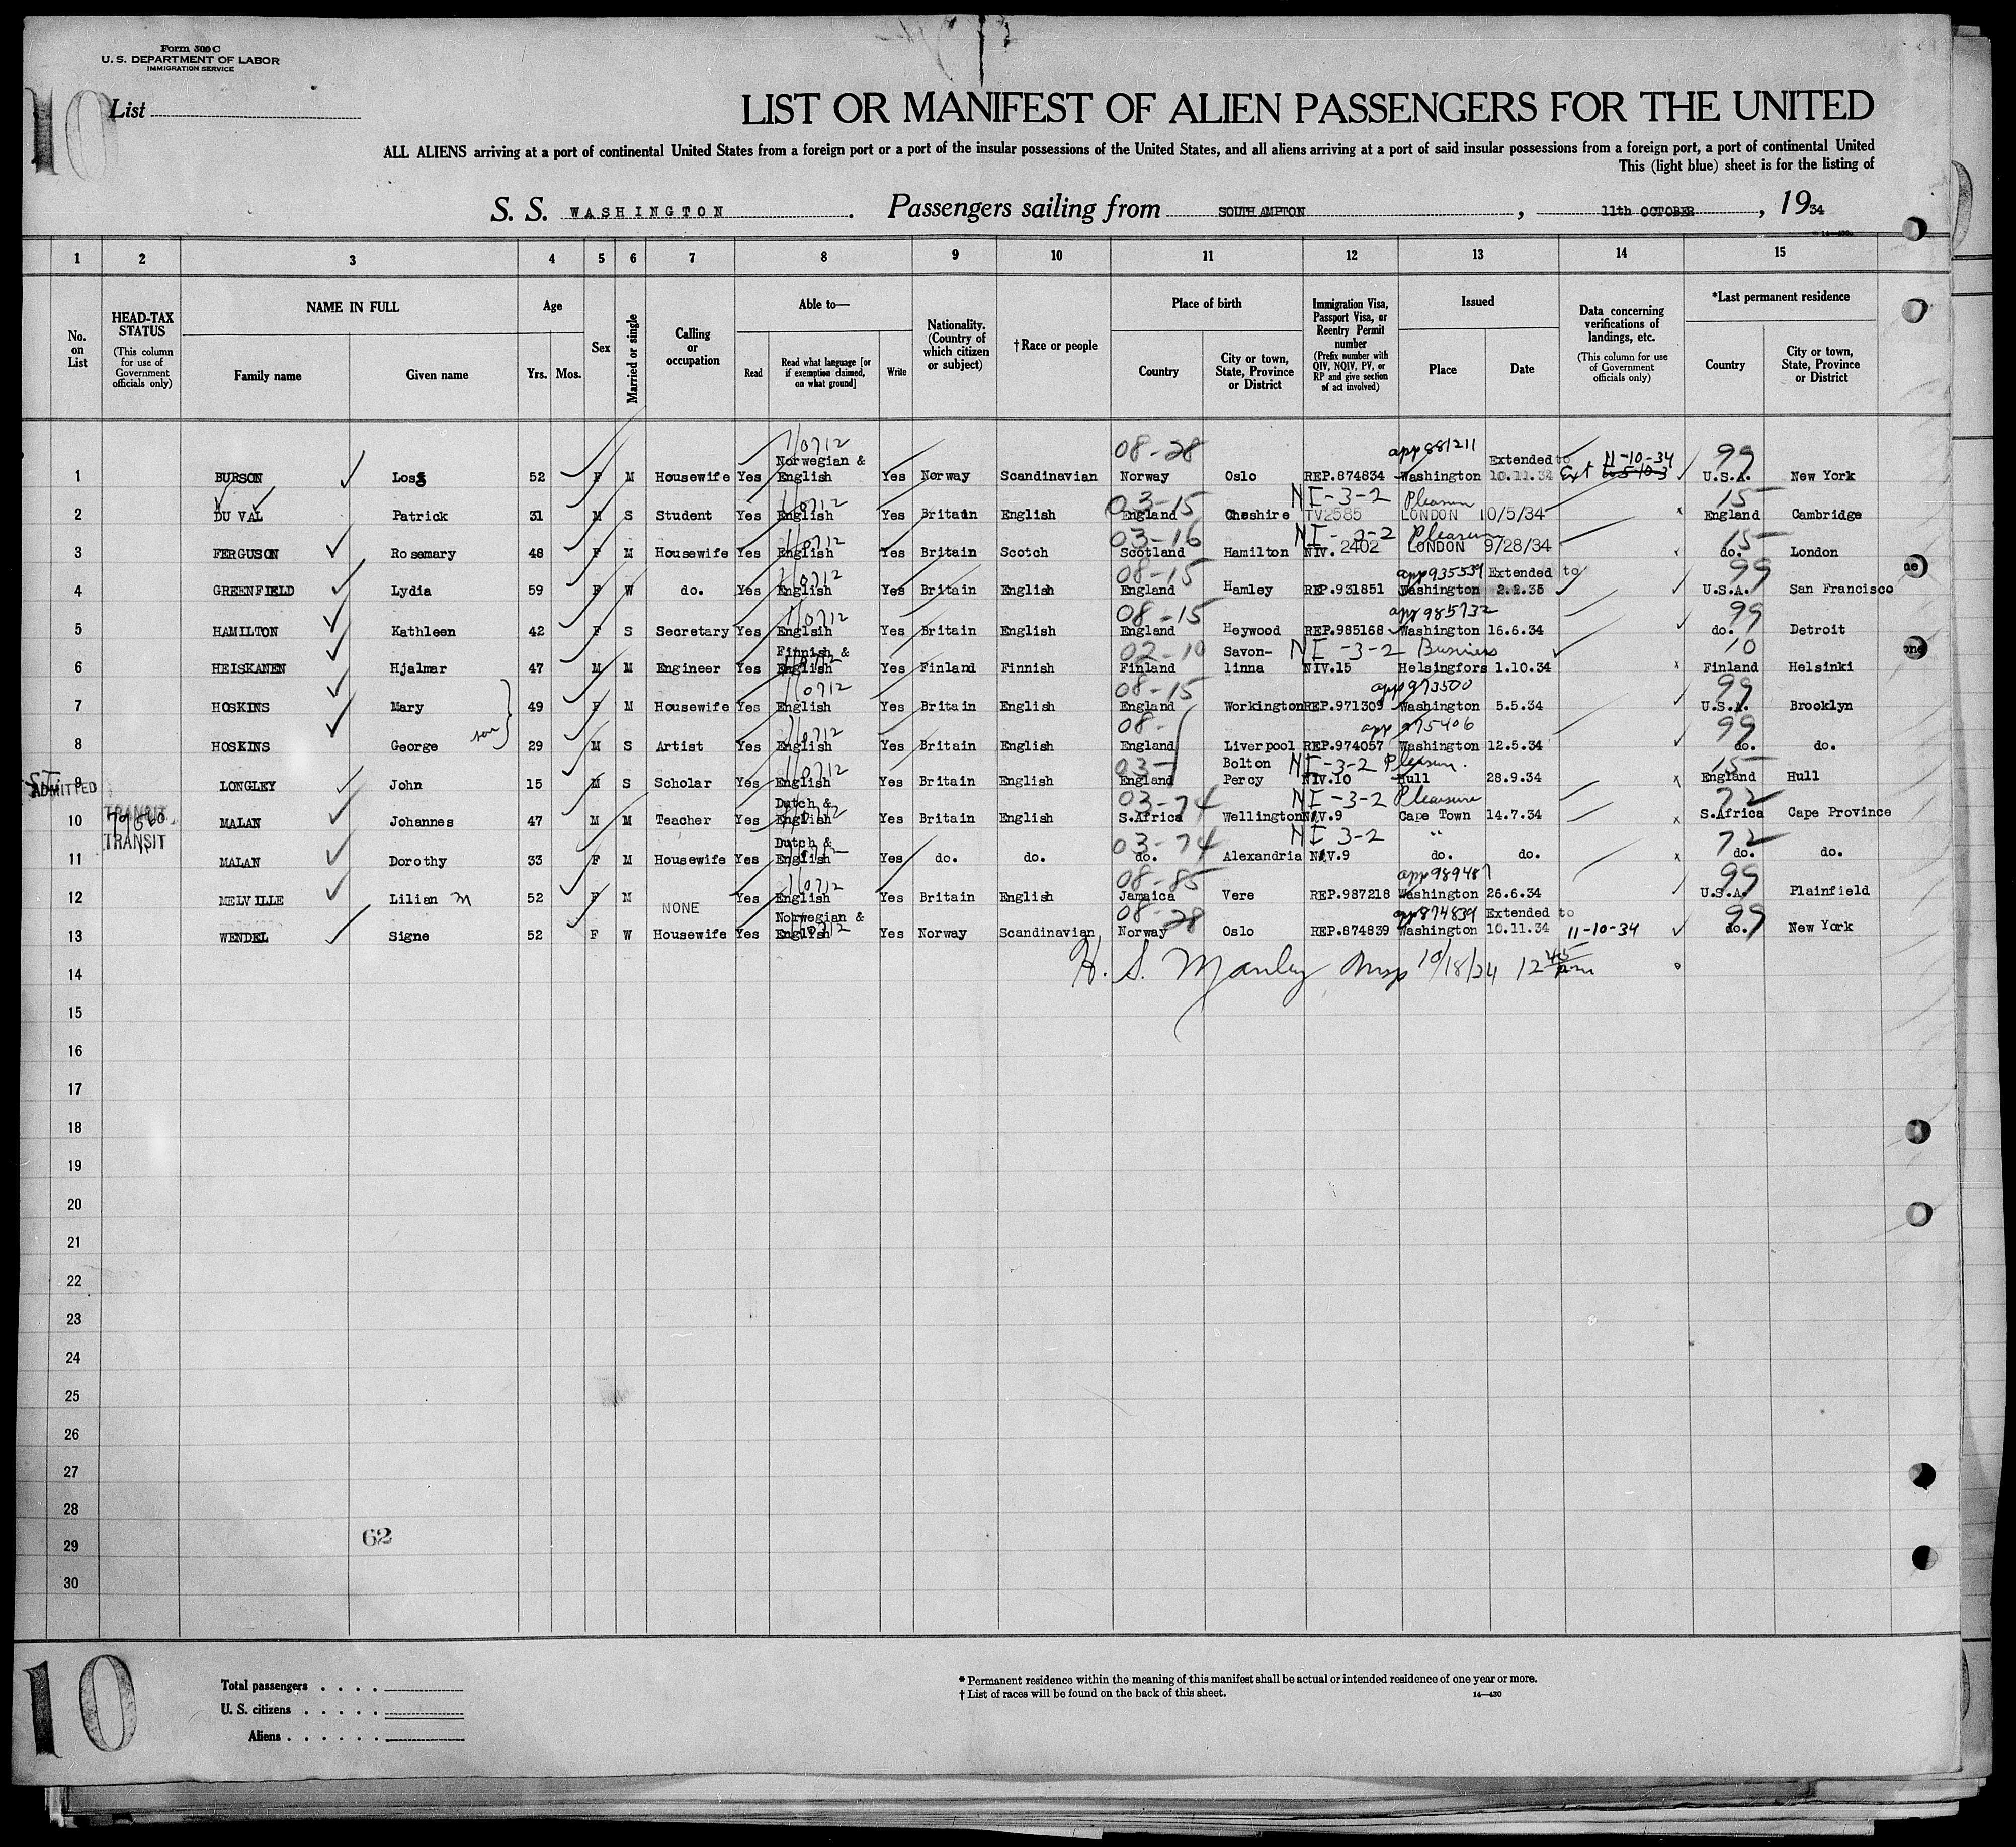 Form 500 C
U. S. DEPARTMENT OF LABOR
IMMIGRATION SERVICE
10
List
LIST OR MANIFEST OF ALIEN PASSENGERS FOR THE UNITED
ALL ALIENS arriving at a port of continental United States from a foreign port or a port of the insular possessions of the United States, and all aliens arriving at a port of said insular possessions from a foreign port, a port of continental United
This (light blue) sheet is for the listing of
S. S. WASHINGTON. Passengers sailing from SOUTHAMPTON, 11th OCTOBER, 1934
1 2 3 4 5 6 7 8 9 10 11 12 13 14 15
No. on List
HEAD-TAX STATUS (This column for use of Government officials only)
NAME IN FULL Family name Given name
Age Yrs. Mos.
Sex
Married or single
Calling or occupation
Able to— Read Read what language [or if exemption claimed, on what ground] Write
Nationality. (Country of which citizen or subject)
† Race or people
Place of birth Country City or town, State, Province or District
Immigration Visa, Passport Visa, or Reentry Permit number (Prefix number with QIV, NQIV, PV, or RP and give section of act involved)
Issued Place Date
Data concerning verifications of landings, etc. (This column for use of Government officials only)
*Last permanent residence Country City or town, State, Province or District
0712 08-28 app 881211 11-10-34 99
Norwegian & Extended to
1 BURSON Los 52 F M Housewife Yes English Yes Norway Scandinavian Norway Oslo REP.874834 Washington 10.11.34 Ext U.S.A. New York
0712 03-15 NI-3-2 Pleasure 15
2 DU VAL Patrick 31 M S Student Yes English Yes Britain English England Cheshire TV2585 LONDON 10/5/34 England Cambridge
0712 03-16 NI-3-2 Pleasure 15
3 FERGUSON Rosemary 48 F M Housewife Yes English Yes Britain Scotch Scotland Hamilton NIV. 2402 LONDON 9/28/34 do. London
0712 08-15 app 935539 Extended to 99
4 GREENFIELD Lydia 59 F W do. Yes English Yes Britain English England Hamley REP.931851 Washington 2.2.35 U.S.A. San Francisco
0712 08-15 app 985732 99
5 HAMILTON Kathleen 42 F S Secretary Yes Englsih Yes Britain English England Heywood REP.985168 Washington 16.6.34 do. Detroit
Finnish & 0712 02-10 Savon- NI-3-2 Business 10
6 HEISKANEN Hjalmar 47 M M Engineer Yes English Yes Finland Finnish Finland linna NIV.15 Helsingfors 1.10.34 Finland Helsinki
0712 08-15 app 973500 99
7 HOSKINS Mary 49 F M Housewife Yes English Yes Britain English England Workington REP.971309 Washington 5.5.34 U.S.A. Brooklyn
0712 08- app 975406 99
8 HOSKINS George son 29 M S Artist Yes English Yes Britain English England Liverpool REP.974057 Washington 12.5.34 do. do.
0712 03- Bolton NI-3-2 Pleasure. 15
9 ADMITTED LONGLEY John 15 M S Scholar Yes English Yes Britain English England Percy NIV.10 Hull 28.9.34 England Hull
TRANSIT Dutch & 0712 03-74 NI-3-2 Pleasure 72
10 MALAN Johannes 47 M M Teacher Yes English Yes Britain English S.Africa Wellington NIV.9 Cape Town 14.7.34 S.Africa Cape Province
TRANSIT Dutch & 0712 03-74 NI 3-2 " 72
11 MALAN Dorothy 33 F M Housewife Yes English Yes do. do. do. Alexandria NIV.9 do. do. do. do.
0712 08-85 app 989487 99
12 MELVILLE Lilian M 52 F M NONE Yes English Yes Britain English Jamaica Vere REP.987218 Washington 26.6.34 U.S.A. Plainfield
Norwegian & 0712 08-28 app 874839 Extended to 99
13 WENDEL Signe 52 F W Housewife Yes English Yes Norway Scandinavian Norway Oslo REP.874839 Washington 10.11.34 11-10-34 do. New York
14 H. S. Manley Insp 10/18/34 12 45
15
16
17
18
19
20
21
22
23
24
25
26
27
28
29
30
62
10
Total passengers
U. S. citizens
Aliens
* Permanent residence within the meaning of this manifest shall be actual or intended residence of one year or more.
† List of races will be found on the back of this sheet.
14—430